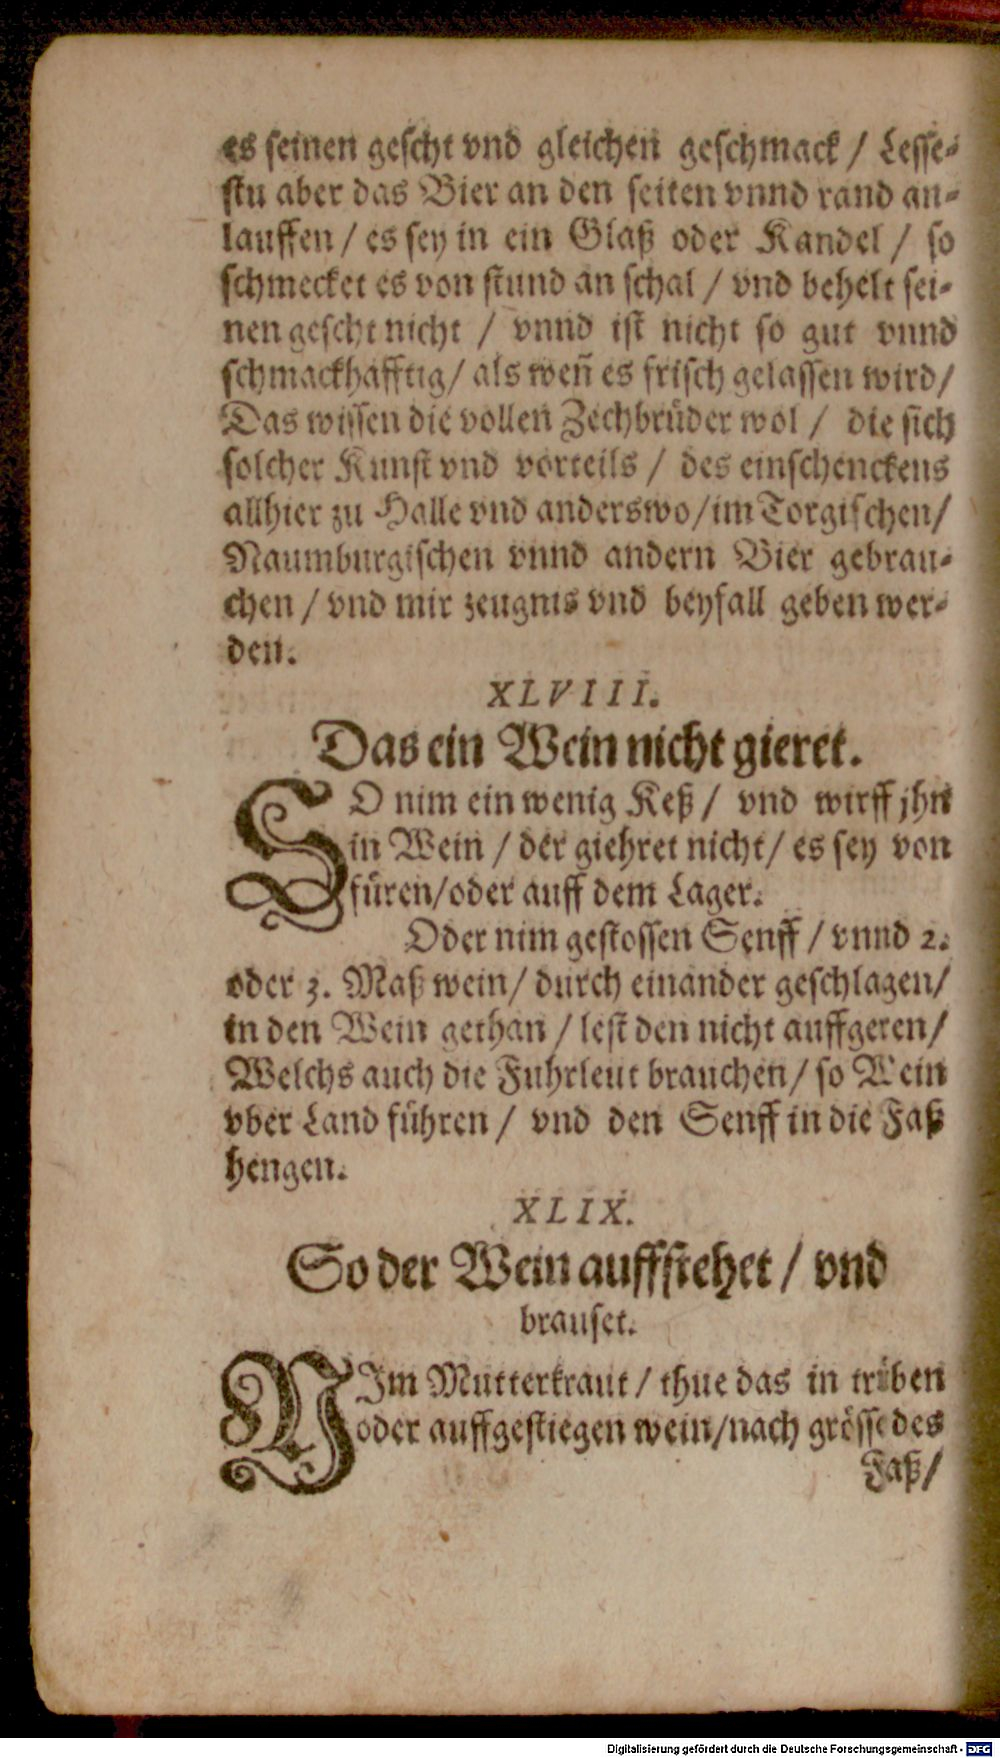 es seinen gescht vnd gleichen geschmack / Lesse-
stu aber das Bier an den seiten vnnd rand an-
lauffen / es sey in ein Glaß oder Kandel / so
schmecket es von stund an schal / vnd behelt sei-
nen gescht nicht / vnnd ist nicht so gut vnnd
schmackhafftig / als weñ es frisch gelassen wird /
Das wissen die vollen Zechbrüder wol / die sich
solcher Kunst vnd vorteils / des einschenckens
allhier zu Halle vnd anderswo / im Torgischen /
Naumburgischen vnnd andern Bier gebrau-
chen / vnd mir zeugnis vnd beyfall geben wer-
den.
XLVIII.
Das ein Wein nicht gieret.
SO nim ein wenig Keß / vnd wirff jhn
in Wein / der giehret nicht / es sey von
füren / oder auff dem Lager.
Oder nim gestossen Senff / vnnd 2.
oder 3. Maß wein / durch einander geschlagen /
in den Wein gethan / lest den nicht auffgeren /
Welchs auch die Fuhrleut brauchen / so Wein
vber Land führen / vnd den Senff in die Faß
hengen.
XLIX.
So der Wein auffstehet / vnd
brauset.
NIm Mutterkraut / thue das in trüben
oder auffgestiegen wein / nach grösse des
Faß /
Digitalisierung gefördert durch die Deutsche Forschungsgemeinschaft - DFG